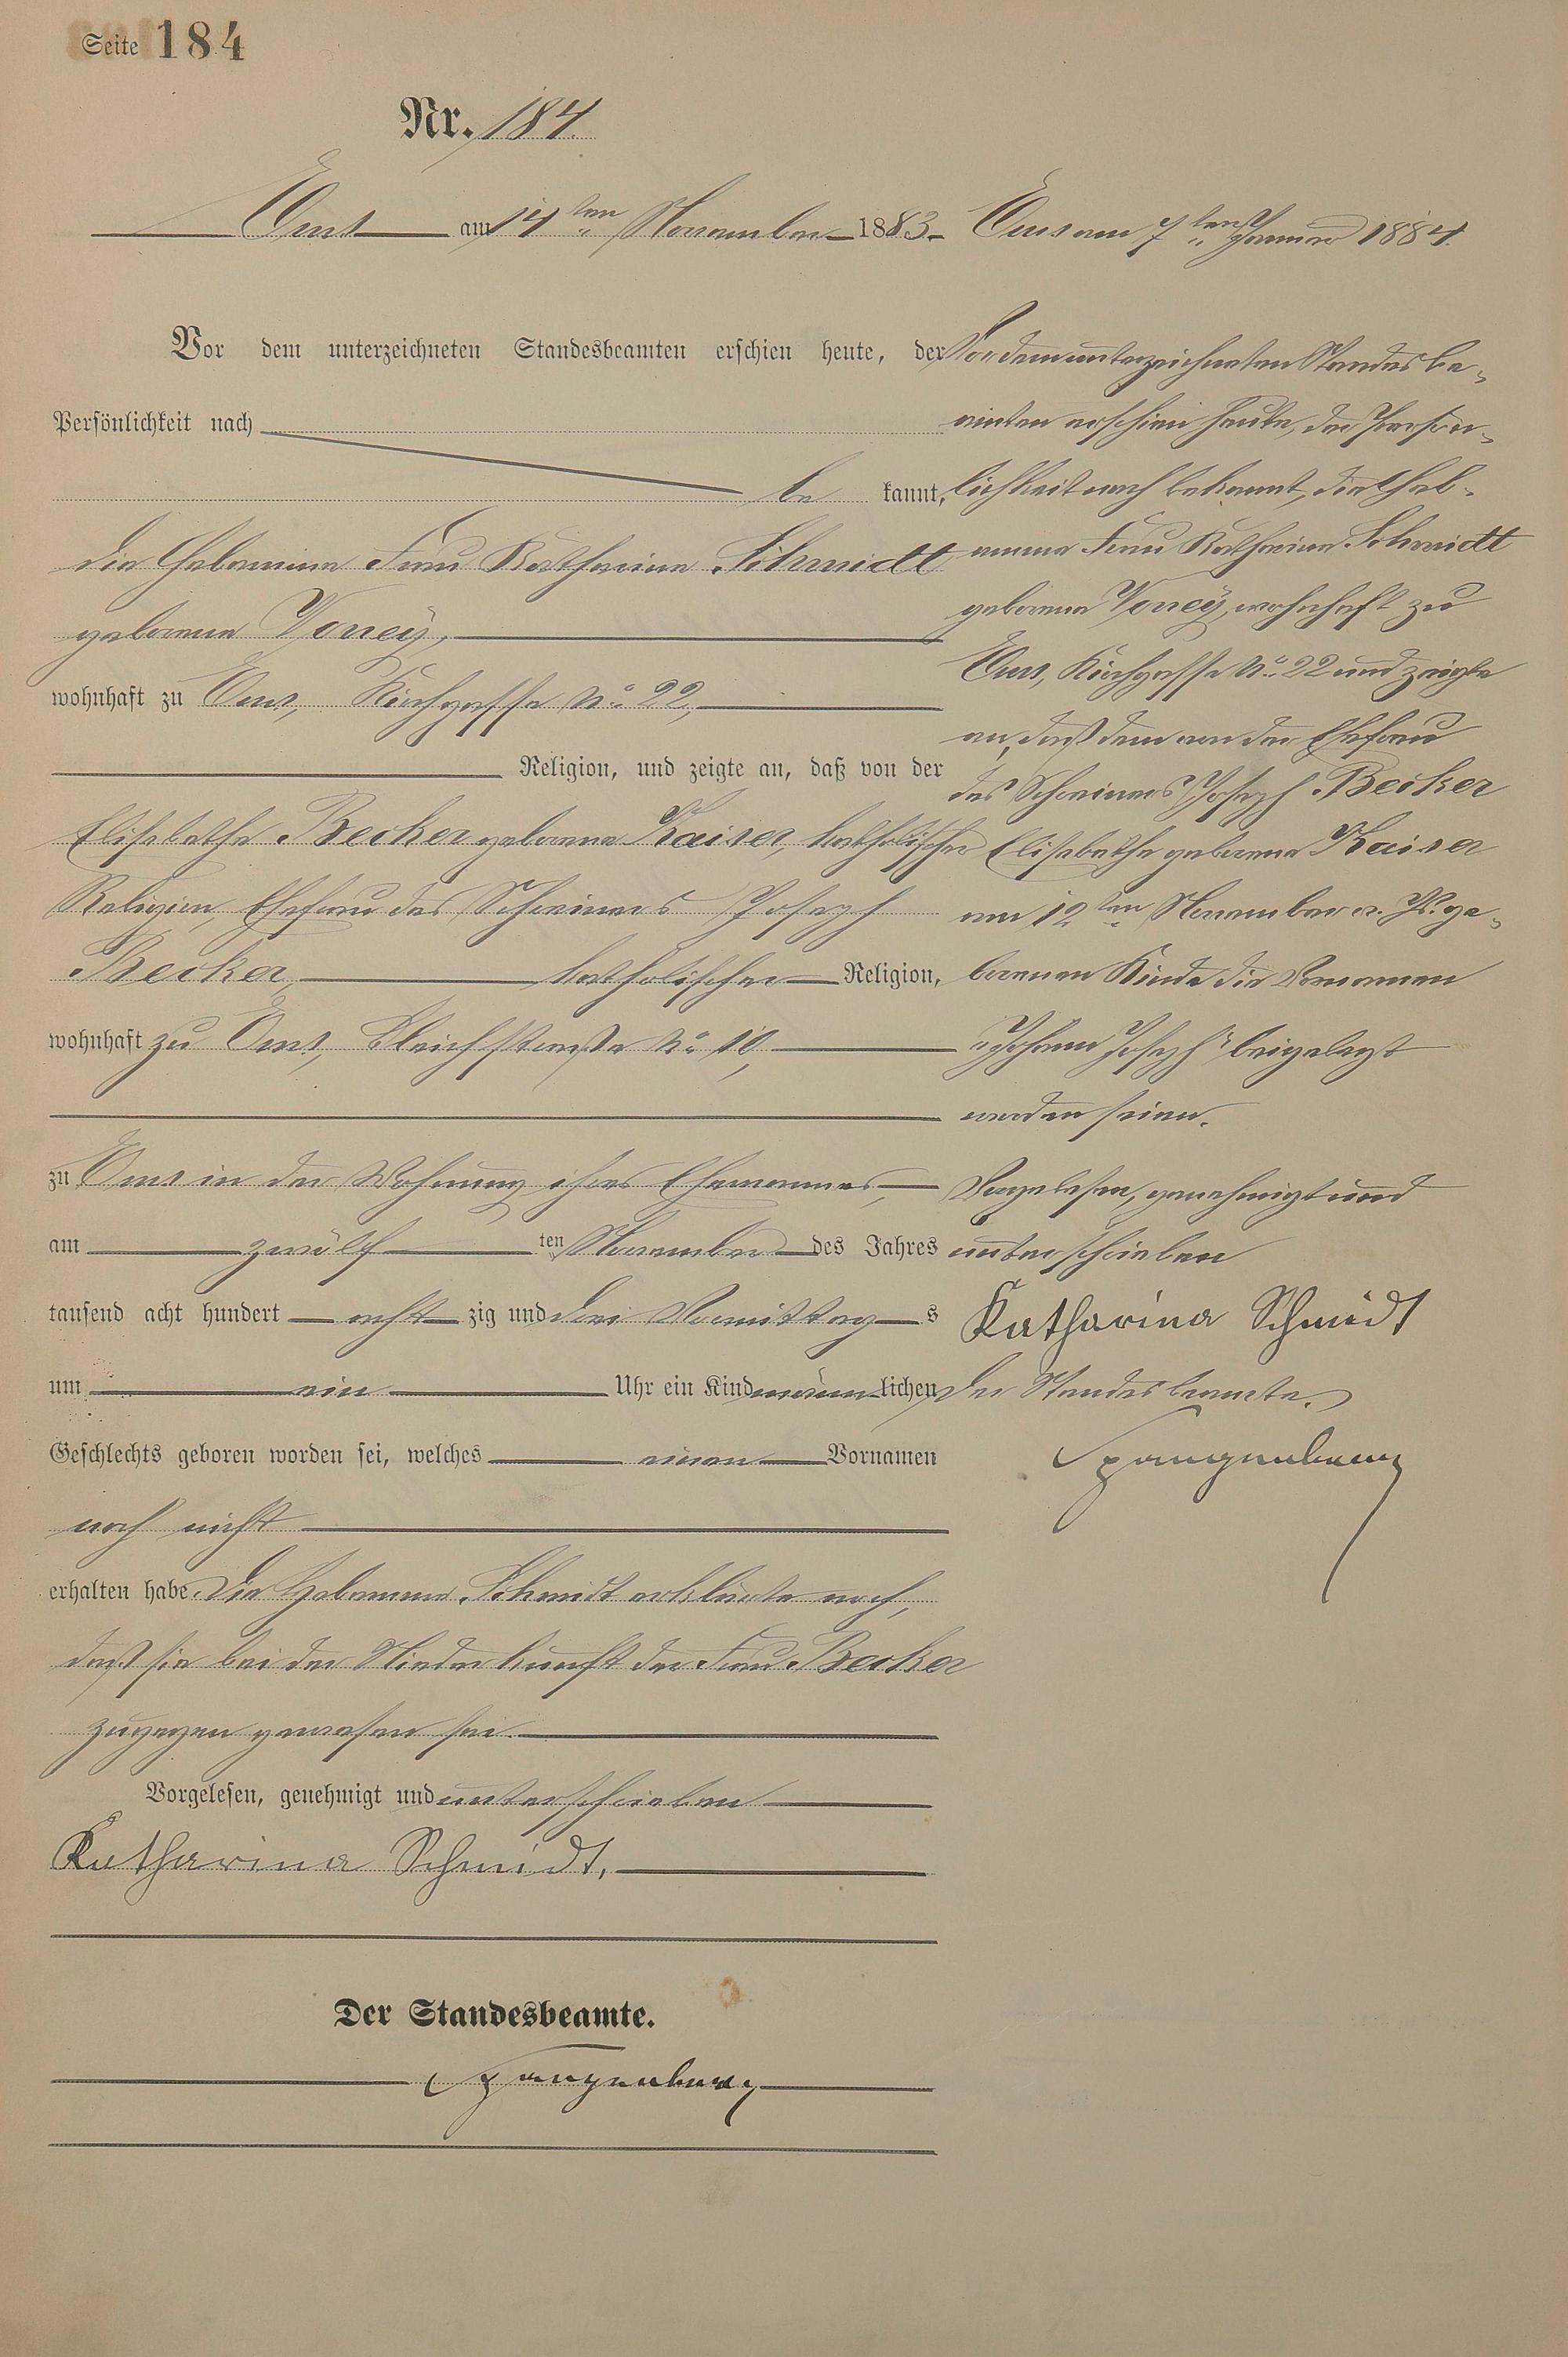 Seite 184
Nr. 184.
Ems am 14ten November 1883.
Vor dem unterzeichneten Standesbeamten erschien heute, der
Persönlichkeit nach
be kannt,
die Hebamme Frau Katharina Schmidt
geborene
wohnhaft zu Ems, Kirchgasse No 22,
Religion, und zeigte an, daß von der
Elisabetha Becker geborene Kaiser, katholischer
Religion, Ehefrau des Schreiners Joseph
Becker katholischer Religion,
wohnhaft zu Ems, Bleichstraße No 10,
zu Ems in der Wohnung ihres Ehemannes,
am zwölf ten November des Jahres
tausend acht hundert acht zig und drei Vormittag s
um ein Uhr ein Kind männ lichen
Geschlechts geboren worden sei, welches einen Vornamen
noch nicht
erhalten habe. Die Hebamme Schmidt erklärte noch,
daß sie bei der Niederkunft der Frau Becker
zugegen gewesen sei.
Vorgelesen, genehmigt und unterschrieben
Katharina Schmidt.
Der Standesbeamte.
Spangenberg
Ems am 7ten Januar 1884.
Vor dem unterzeichneten Standesbe-
amten erschien heute, der Persön-
lichkeit nach bekannt, die Heb-
amme Frau Katharina Schmidt
geborene wohnhaft zu
Ems, Kirchgasse No 22 und zeigte
an, daß dem von der Ehefrau
des Schreiners Joseph Becker
Elisabetha geborene Kaiser
am 12ten November v. Js. ge-
borenen Kinde die Vornamen
"Johann Joseph" beigelegt
worden seien.
Vorgelesen, genehmigt und
unterschrieben
Katharina Schmidt
Der Standesbeamte.
Spangenberg